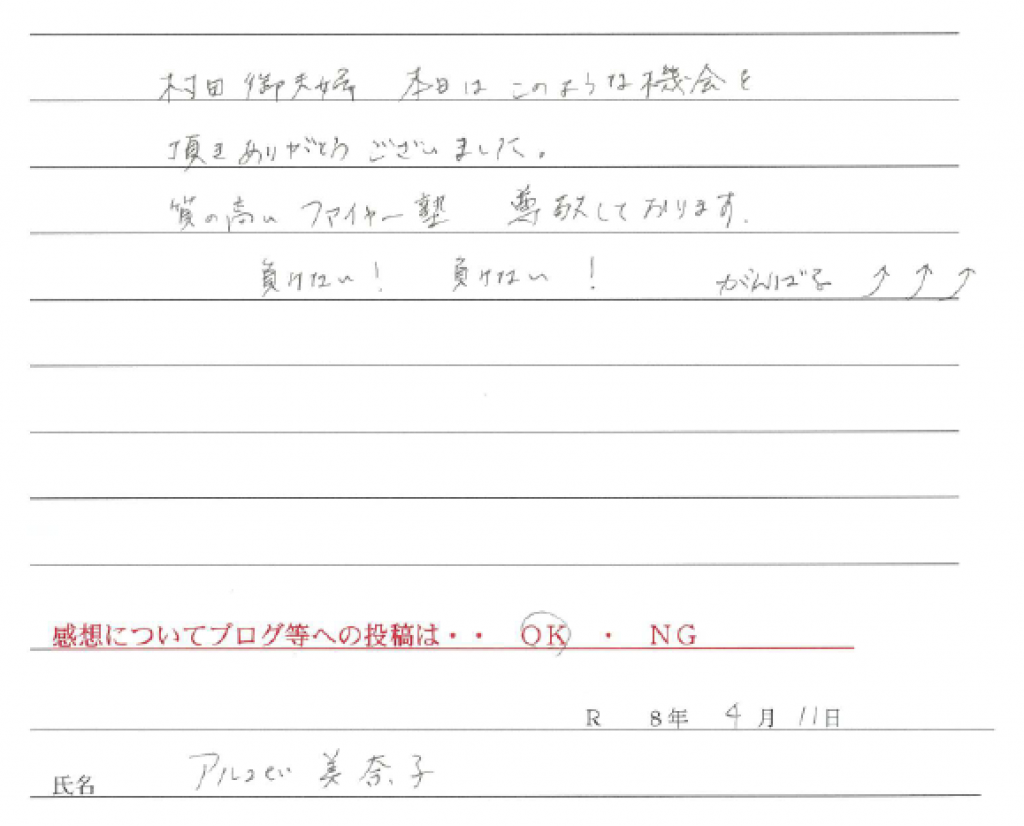 村田御夫婦 本日はこのような機会を
頂きありがとうございました。
質の高いファイヤー塾 尊敬しております。
負けない! 負けない! がんばる ↑↑↑
感想についてブログ等への投稿は・・ OK ・ NG
R 8年 4月 11日
氏名 美奈子